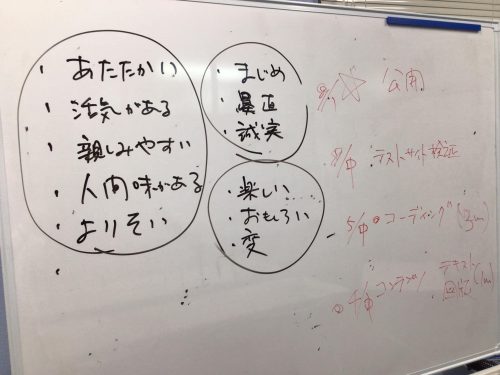 ・あたたかい
・活気がある
・親しみやすい
・人間味がある
・よりそい
・まじめ
・愚直
・誠実
・楽しい
・おもしろい
・変
公開
8/中 テストサイト検証
5/中 コーディング (3m)
4/中 コンテンツ
テキスト
図版